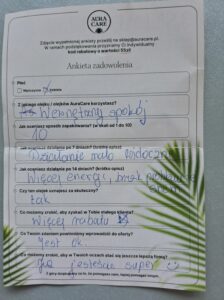 AURA
CARE
Zdjęcie wypełnionej ankiety prześlij na sklep@auracare.pl.
W ramach podziękowania przyznamy Ci indywidualny
kod rabatowy o wartości 55zł!
Ankieta zadowolenia
Płeć
Mężczyzna Kobieta
Z jakiego olejku / olejków AuraCare korzystasz?
Wewnętrzny spokój
Jak oceniasz sposób zapachowania? (w skali od 1 do 10)
10
Jak oceniasz działanie po 7 dniach? (krótka opisz)
Działanie mało widoczne
Jak oceniasz działanie po 14 dniach? (krótka opisz)
Więcej energi, brak
Czy ten olejek uznajesz za skuteczny?
tak
Co możemy zrobić, aby zyskać w Tobie stałego klienta?
Więcej rabatu
Co Twoim zdaniem powinniśmy wprowadzić do oferty?
Jest ok.
Co możemy zrobić, aby w Twoich oczach stać się jeszcze lepszą firmą?
jesteście super